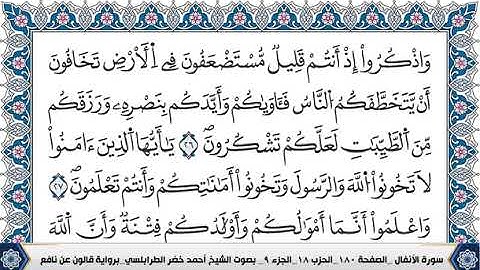 وَاذْكُرُوٓاْ إِذْ أَنتُمْ قَلِيلٞ مُّسْتَضْعَفُونَ فِي اِ۬لْأَرْضِ تَخَافُونَ
أَنْ يَّتَخَطَّفَكُمُ النَّاسُ فَـَٔاو۪يٰكُمْ وَأَيَّدَكُم بِنَصْرِهِۦ وَرَزَقَكُم
مِّنَ اَ۬لطَّيِّبَٰتِ لَعَلَّكُمْ تَشْكُرُونَۖ ٢٦ يَٰٓأَيُّهَا اَ۬لذِينَ ءَامَنُواْ
لَا تَخُونُواْ اُ۬للَّهَ وَالرَّسُولَ وَتَخُونُوٓاْ أَمَٰنَٰتِكُمْ وَأَنتُمْ تَعْلَمُونَۖ ٢٧
وَاعْلَمُوٓاْ أَنَّمَآ أَمْوَٰلُكُمْ وَأَوْلَٰدُكُمْ فِتْنَةٞ وَأَنَّ اَ۬للَّهَ
سورة الأنفال _الصفحة ١٨٠_ الحزب ١٨_الجزء ٩_ بصوت الشيخ أحمد خضر الطرابلسي_برواية قالون عن نافع